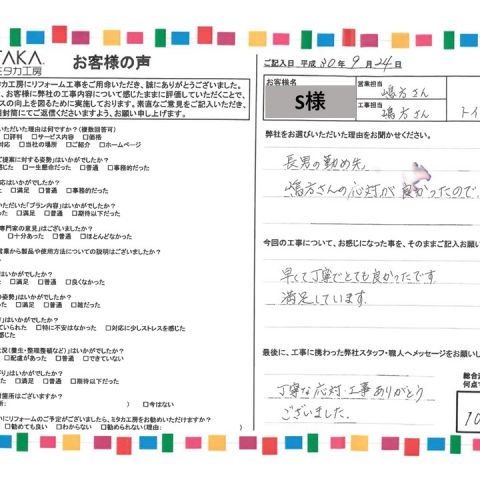 TAKA
ミタカ工房
お客様の声
カ工房にリフォーム工事をご用命いただき、誠にありがとうございました。
、お客様に弊社の工事内容について感じたままに評価していただくことで、
スの向上を図るために実施しております。率直なご意見をご記入いただき、
封筒にてご返信くださいますよう、お願い申し上げます。
いただいた理由は何ですか?(複数回答可)
□評判 □サービス内容 □価格
対応 □当社の場所 □ご紹介 □ホームページ
ご提案に対する姿勢」はいかがでしたか?
感じた □一生懸命だった □普通 □事務的だった
応はいかがでしたか?
った □満足 □普通 □事務的だった
いただいた「プラン内容」はいかがでしたか?
った □満足 □普通 □期待以下だった
専門家の意見」はございましたか?
□十分あった □普通 □ほとんどなかった
営業から製品や使用方法についての説明はございましたか?
はいかがでしたか?
った □満足 □普通 □良くなかった
の姿勢」はいかがでしたか?
った □満足 □普通 □雑だった
はいかがでしたか?
ていられた □特に不安はなかった □対応に少しストレスを感じた
状況(養生・整理整頓など)」はいかがでしたか?
□配慮があった □普通 □できていない
がり」はいかがでしたか?
った □満足 □普通 □期待以下だった
箇所はございますか?
) □今はない
いにリフォームのご予定がございましたら、ミタカ工房をお勧めいただけますか?
□勧めても良い □わからない □勧められない(理由: )
ご記入日 平成 30年 9月 24日
お客様名
S様
営業担当
嶋方さん
工事担当
嶋方さん
トイ
弊社をお選びいただいた理由をお聞かせください。
長男の勤め先
嶋方さんの応対が良かったので、
今回の工事について、お感じになった事を、そのままご記入お願い
早くて丁寧でとても良かったです。
満足しています。
最後に、工事に携わった弊社スタッフ・職人へメッセージをお願いし
丁寧な応対・工事ありがとう
ございました。
総合
何点で
10